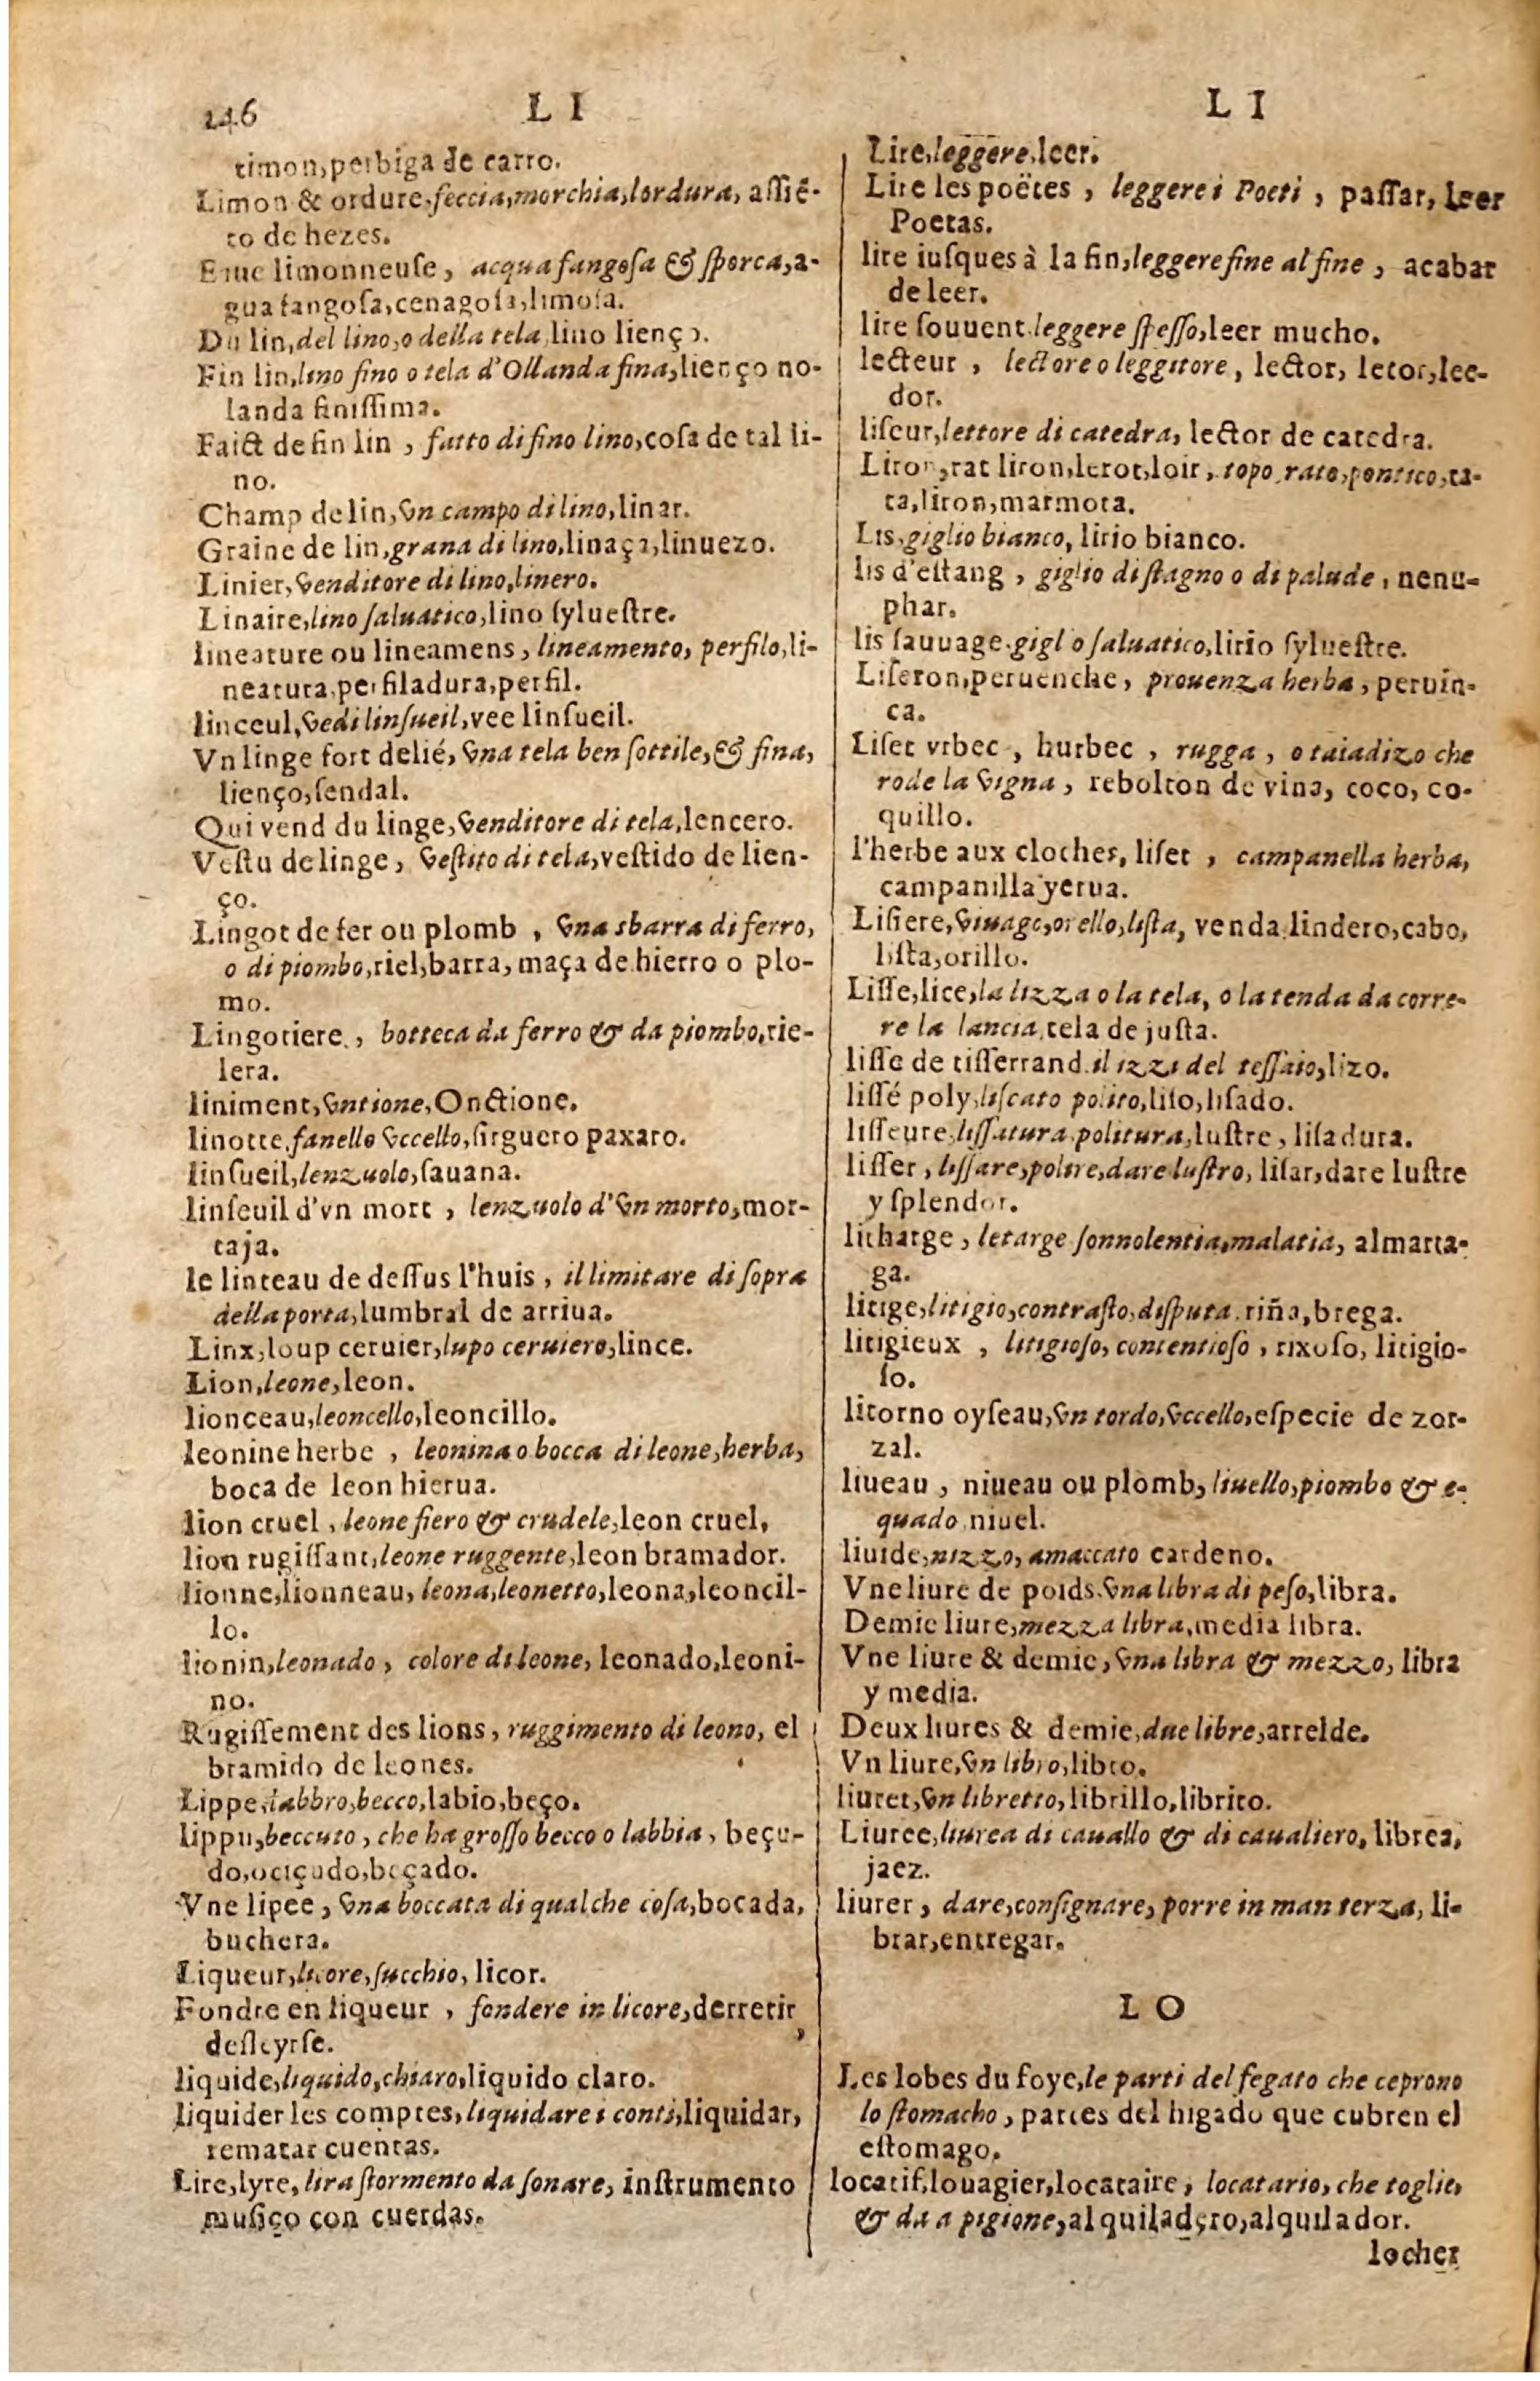 246 L I
timon, perbiga de carro.
Limon & ordure, feccia, morchia, lordura, aſſiē-
to de hezes.
Eaue limonneuſe, acqua fangoſa & ſporca, a-
gua fangoſa, cenagoſa, limoſa.
Du lin, del lino, o della tela, lino lienço.
Fin lin, lino fino o tela d'Ollanda fina, lienço no-
landa finiſſima.
Faict de fin lin, fatto di fino lino, coſa de tal li-
no.
Champ de lin, vn campo di lino, linar.
Graine de lin, grana di lino, linaça, linuezo.
Linier, venditore di lino, linero.
Linaire, lino ſaluatico, lino ſylueſtre.
lineature ou lineamens, lineamento, perfilo, li-
neatura, perfiladura, perfil.
linceul, vedi linſueil, vee linſueil.
Vn linge fort delié, vna tela ben ſottile, & fina,
lienço, ſendal.
Qui vend du linge, venditore di tela, lencero.
Veſtu de linge, veſtito di tela, veſtido de lien-
ço.
Lingot de fer ou plomb, vna sbarra di ferro,
o di piombo, riel, barra, maça de hierro o plo-
mo.
Lingotiere, botteca da ferro & da piombo, rie-
lera.
liniment, vntione, Onctione.
linotte, fanello vccello, ſirguero paxaro.
linſueil, lenzuolo, ſauana.
linſeuil d'vn mort, lenzuolo d'vn morto, mor-
taja.
le linteau de deſſus l'huis, il limitare di ſopra
della porta, lumbral de arriua.
Linx, loup ceruier, lupo ceruiero, lince.
Lion, leone, leon.
lionceau, leoncello, leoncillo.
leonine herbe, leonina o bocca di leone, herba,
boca de leon hierua.
lion cruel, leone fiero & crudele, leon cruel,
lion rugiſſant, leone ruggente, leon bramador.
lionne, lionneau, leona, leonetto, leona, leoncil-
lo.
lionin, leonado, colore di leone, leonado, leoni-
no.
Rugiſſement des lions, ruggimento di leono, el
bramido de leones.
Lippe, labbro, becco, labio, beço.
lippu, beccuto, che ha groſſo becco o labbia, beçu-
do, ociçudo, beçado.
Vne lipee, vna boccata di qualche coſa, bocada,
buchera.
Liqueur, licore, ſucchio, licor.
Fondre en liqueur, fondere in licore, derretir,
desleyrſe.
liquide, liquido, chiaro, liquido claro.
liquider les comptes, liquidare i conti, liquidar,
rematar cuentas.
Lire, lyre, lira ſtormento da ſonare, inſtrumento
muſico con cuerdas.
L I
Lire, leggere, leer.
Lire les poëtes, leggere i Poeti, paſſar, leer
Poetas.
lire iuſques à la fin, leggere fine al fine, acabar
de leer.
lire ſouuent, leggere ſpeſſo, leer mucho.
lecteur, lectore o leggitore, lector, letor, lee-
dor.
liſeur, lettore di catedra, lector de catedra.
Liron, rat liron, lerot, loir, topo, rato, pontico, ra-
ta, liron, marmota.
Lis, giglio bianco, lirio bianco.
lis d'eſtang, giglio di ſtagno o di palude, nenu-
phar.
lis ſauuage, giglio ſaluatico, lirio ſylueſtre.
Liſeron, peruenche, prouenza herba, peruin-
ca.
Liſet vrbec, hurbec, rugga, o taiadizo che
rode la vigna, rebolton de vina, coco, co-
quillo.
l'herbe aux cloches, liſet, campanella herba,
campanilla yerua.
Liſiere, viuago, orello, liſta, venda, lindero, cabo,
liſta, orillo.
Liſſe, lice, la lizza o la tela, o la tenda da corre-
re la lancia, tela de juſta.
liſſe de tiſſerrand, il izzi del teſſaio, lizo.
liſſé poly, liſcato polito, liſo, liſado.
liſſeure, liſſatura, politura, luſtre, liſadura.
liſſer, liſſare, polire, dare luſtro, liſar, dare luſtre
y ſplendor.
litharge, letarge ſonnolentia, malatia, almarta-
ga.
litige, litigio, contraſto, diſputa, riña, brega.
litigieux, litigioſo, contentioſo, rixoſo, litigio-
ſo.
litorno oyſeau, vn tordo, vccello, eſpecie de zor-
zal.
liueau, niueau ou plomb, liuello, piombo & e-
quado, niuel.
liuide, nizzo, amaccato cardeno.
Vne liure de poids, vna libra di peſo, libra.
Demie liure, mezza libra, media libra.
Vne liure & demie, vna libra & mezzo, libra
y media.
Deux liures & demie, due libre, arrelde.
Vn liure, vn libro, libro.
liuret, vn libretto, librillo, librito.
Liuree, liurea di cauallo & di caualiero, librea,
jaez.
liurer, dare, conſignare, porre in man terza, li-
brar, entregar.
L O
Les lobes du foye, le parti del fegato che ceprono
lo ſtomacho, partes del higado que cubren el
eſtomago.
locatif, louagier, locataire, locatario, che toglie,
& da a pigione, alquiladero, alquilador.
locher